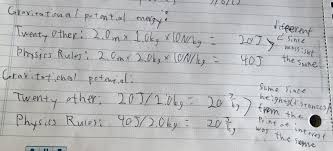 Gravitational potential energy:
Twenty other: 2.0m x 1.0kg x 10N/kg = 20J
Physics Rules: 2.0m x 2.0kg x 10N/kg = 40J
different
since
mass isn't
the same
Gravitational potential:
Twenty other: 20J/1.0kg = 20 J/kg
Physics Rules: 40J/2.0kg = 20 J/kg
Same since
height/distances
from the
point of interest
was the same